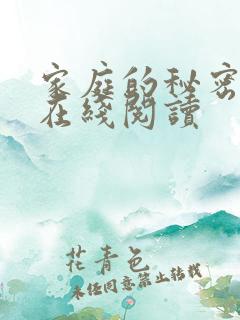 家庭的秘密
在綫閱讀
花青色
未经同意禁止转载